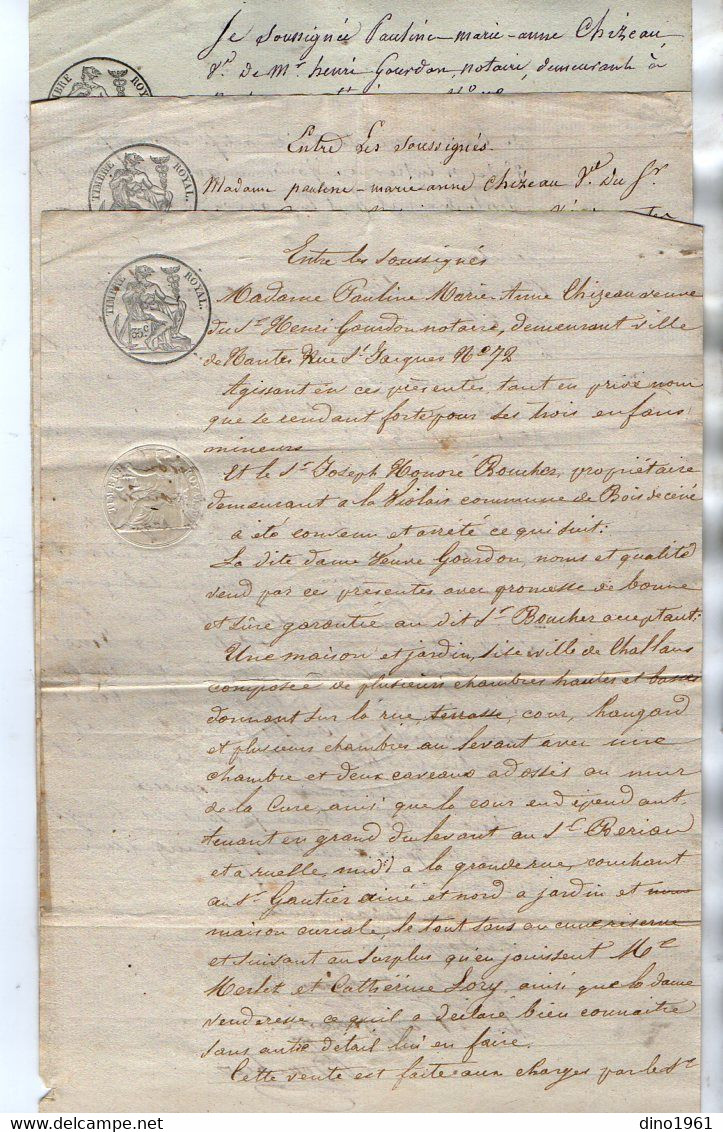 Je soussignée Pauline-marie-anne Chizeau
Vve de Mr henri Gourdon, notaire, demeurant à
TIMBRE ROYAL
Entre Les soussignés
Madame pauline-marie-anne Chizeau Vve du Sr
TIMBRE ROYAL.
Entre les soussignés
TIMBRE ROYAL.
35 c
Madame Pauline Marie Anne Chizeau veuve
du Sr Henri Gourdon notaire, demeurant ville
de Nantes Rue St Jacques No 72
Agissant en ces présentes, tant en privé nom
que se rendant forte pour ses trois enfans
mineurs
Et le Sr Joseph Honoré Boucher, propriétaire
demeurant a la Violais commune de Bois de céné
a été convenu et arrêté ce qui suit:
La dite dame Veuve Gourdon, noms et qualité
vend par ces présentes avec promesse de bonne
et sûre garantie au dit Sr Boucher acceptant:
Une maison et jardin, sise ville de Challans
composée de plusieurs chambres hautes et basses
donnant sur la rue, terrasse, cour, hangard
et plusieurs chambres au levant avec une
chambre et deux caveaux adossés au mur
de la Cure, ainsi que la cour en dépendant,
tenant en grand du levant au Sr Beriau
et a ruelle, midi a la grande rue, couchant
au Sr Gautier ainé et nord a jardin et
maison curiale, le tout sans aucune réserve
et suivant au surplus qu'en jouissent Mr
Merlet et Catherine Lory, ainsi que la dame
venderesse, ce qu'il a déclaré bien connaitre
sans autre détail lui en faire.
Cette vente est faite aux charges par le Sr
dino1961